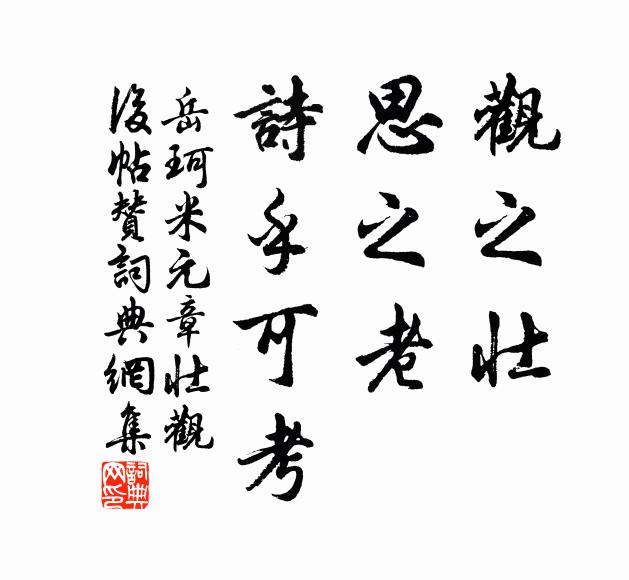 觀之壯
思之老
詩乎可考
岳珂米元章壯觀
後帖贊詞典網集
詞典网印